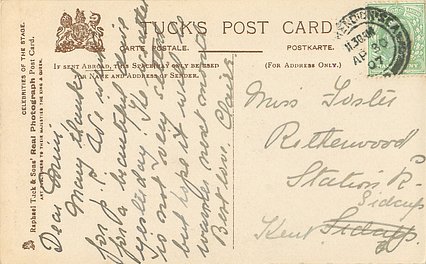 TUCK'S POST CARD
CARTE POSTALE.
POSTKARTE.
IF SENT ABROAD, THIS SPACE MAY ONLY BE USED
FOR NAME AND ADDRESS OF SENDER.
(FOR ADDRESS ONLY.)
CELEBRITIES OF THE STAGE.
Raphael Tuck & Sons' Real Photograph Post Card.
ART PUBLISHERS TO THEIR MAJESTIES THE KING & QUEEN.
11.30AM
AP 30
07
Dear
Many thanks
for p.c.
for a beautiful
yesterday. The weather
is not very
but hope it will
warmer next
Best love. Claire
Miss Foster
Rotherwood
Station R.
Sidcup
Kent. Sidcup